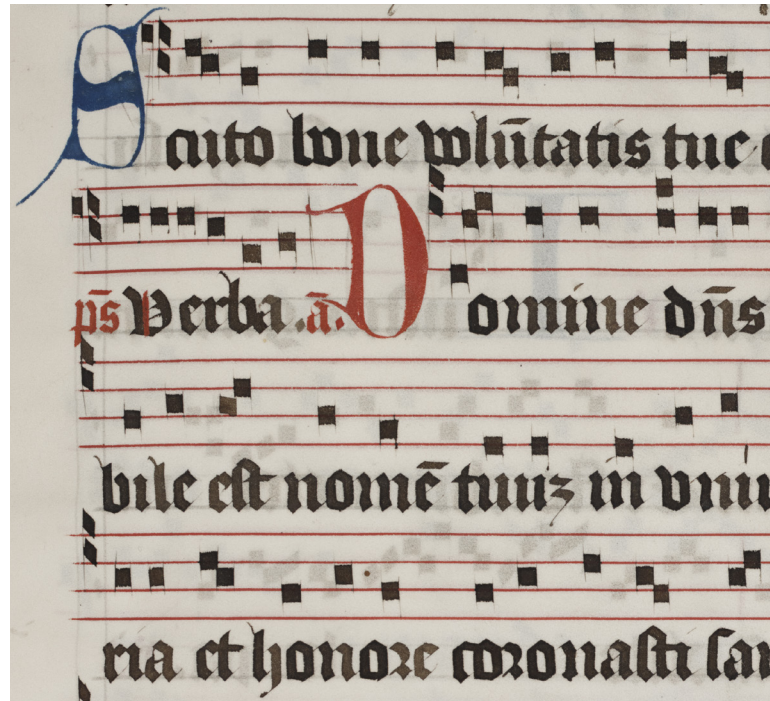 Scuto bone volūtatis tue
p̄s Verba .a̅. Domine dn̄s
bile est nomē tuuꝫ in vniu
ria et honore coronasti san